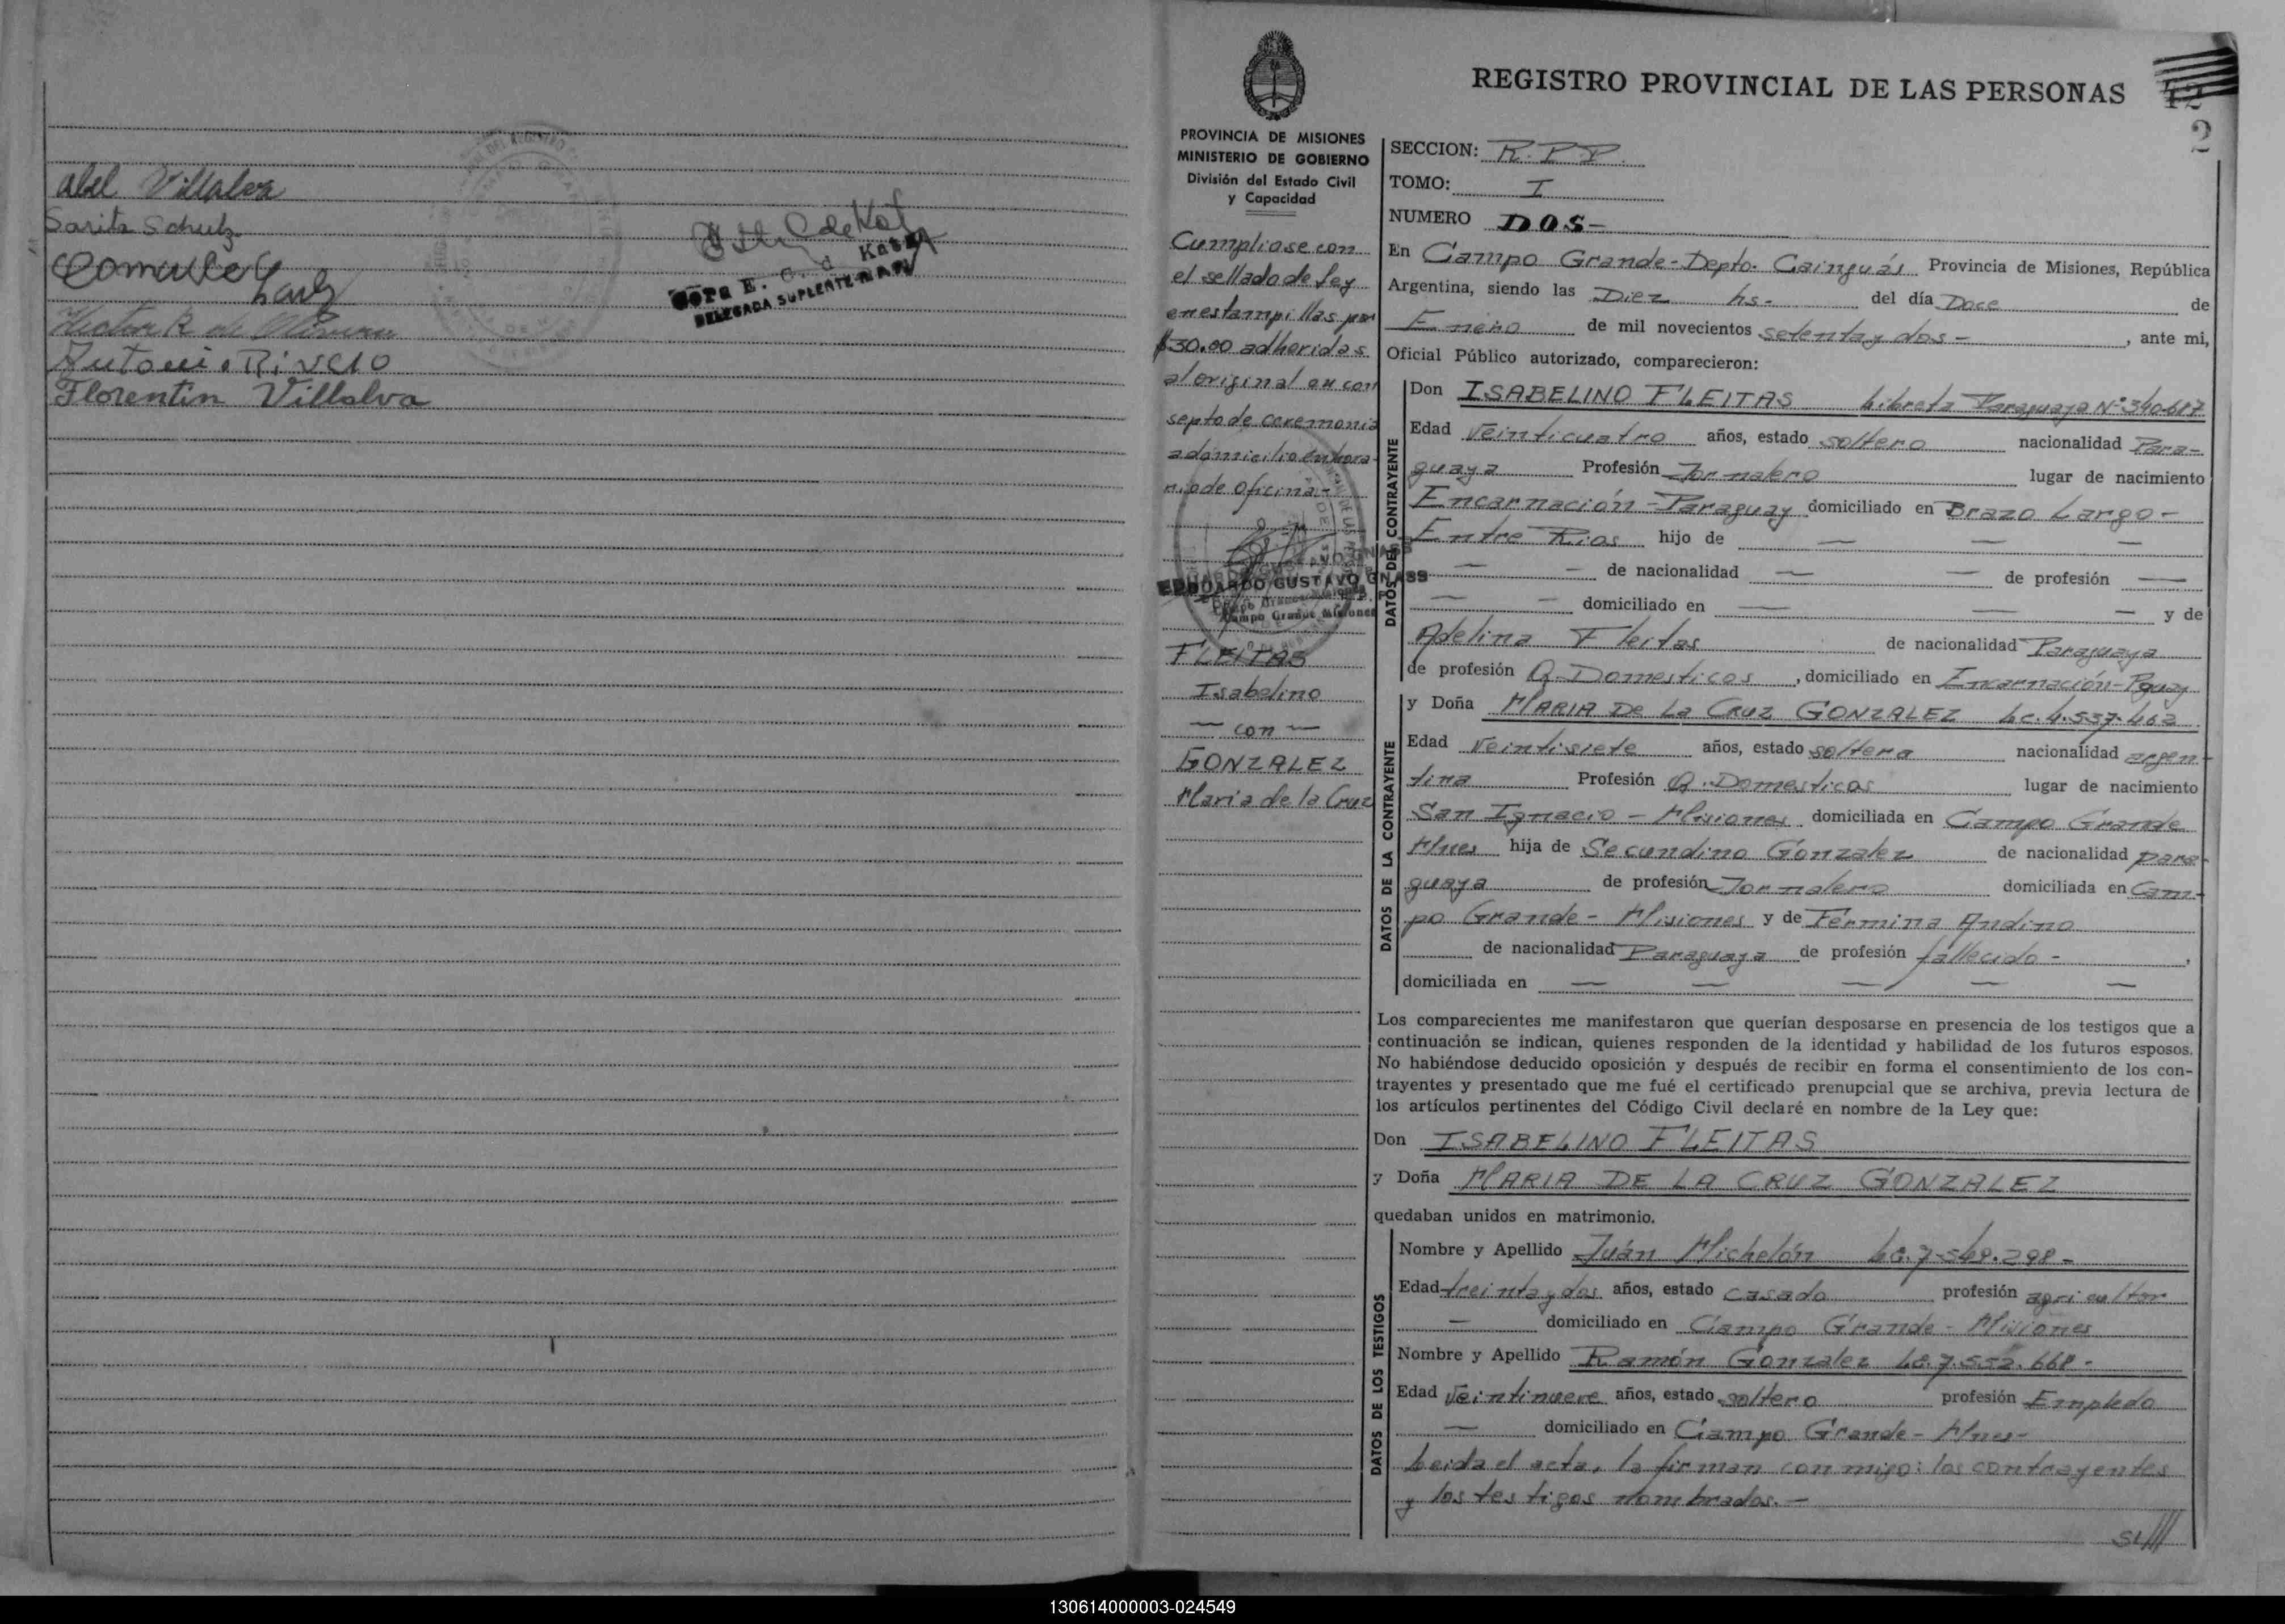 Abel Villalva
Sarita Schulz
Gomercel
Antonio Rivero
Florentin Villalva
Nora E. C. d Katz
DELEGADA SUPLENTE
REGISTRO PROVINCIAL DE LAS PERSONAS
42
2
PROVINCIA DE MISIONES
MINISTERIO DE GOBIERNO
División del Estado Civil
y Capacidad
Cumpliase con
el sellado de ley
en estampillas por
$30.00 adheridas
al original en con
septo de ceremonia
a domicilio en hora-
rio de oficina-
EDUARDO GUSTAVO GNASS
Campo Grande Misiones
FLEITAS
Isabelino
— con —
GONZALEZ
Maria de la Cruz
SECCION: R.P.P.
TOMO: I
NUMERO DOS-
En Campo Grande-Depto. Cainguás Provincia de Misiones, República
Argentina, siendo las Diez hs- del día Doce de
Enero de mil novecientos setenta y dos- , ante mi,
Oficial Público autorizado, comparecieron:
DATOS DEL CONTRAYENTE
Don ISABELINO FLEITAS Libreta Paraguaya Nº 340.617
Edad Veinticuatro años, estado soltero nacionalidad Para-
guaya Profesión Jornalero lugar de nacimiento
Encarnación-Paraguay domiciliado en Brazo Largo-
Entre Rios hijo de — — —
— — de nacionalidad — — de profesión —
— — domiciliado en — — — y de
Adelina Fleitas de nacionalidad Paraguaya
de profesión Q-Domesticos , domiciliado en Encarnación-Pguay
DATOS DE LA CONTRAYENTE
y Doña MARIA DE LA CRUZ GONZALEZ Lc. 4.537.462
Edad Veintisiete años, estado soltera nacionalidad argen-
tina Profesión Q.Domesticos lugar de nacimiento
San Ignacio - Misiones domiciliada en Campo Grande
Mnes hija de Secundino Gonzalez de nacionalidad para-
guaya de profesión Jornalero domiciliada en Cam-
po Grande- Misiones y de Fermina Andino
de nacionalidad Paraguaya de profesión fallecida - ,
domiciliada en — — — — —
Los comparecientes me manifestaron que querían desposarse en presencia de los testigos que a
continuación se indican, quienes responden de la identidad y habilidad de los futuros esposos.
No habiéndose deducido oposición y después de recibir en forma el consentimiento de los con-
trayentes y presentado que me fué el certificado prenupcial que se archiva, previa lectura de
los artículos pertinentes del Código Civil declaré en nombre de la Ley que:
Don ISABELINO FLEITAS
y Doña MARIA DE LA CRUZ GONZALEZ
quedaban unidos en matrimonio.
DATOS DE LOS TESTIGOS
Nombre y Apellido Juán Michelón Le. 7-569.298-
Edad treinta y dos años, estado casado profesión agricultor
— domiciliado en Campo Grande- Misiones
Nombre y Apellido Ramón Gonzalez Le. 7.552.668-
Edad Veintinueve años, estado soltero profesión Empledo
— domiciliado en Campo Grande- Mnes-
Leida el acta, la firman con migo: los contrayentes
y los testigos nombrados.-
SL///
130614000003-024549